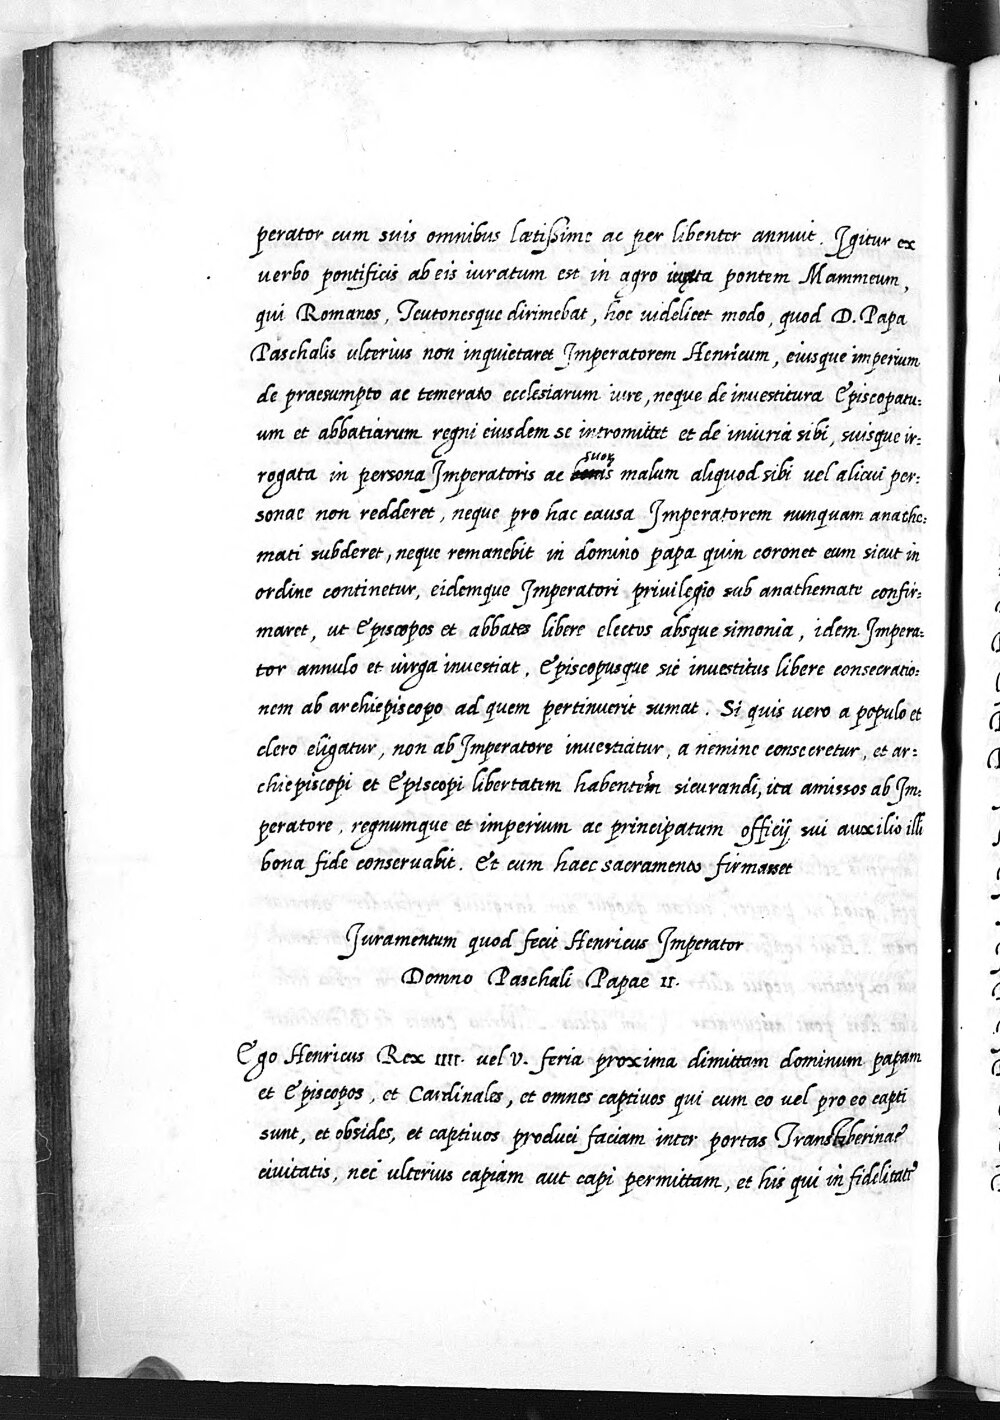 perator cum suis omnibus lætissime ac per libenter annuit. Igitur ex
verbo pontificis ab eis iuratum est in agro iuxta pontem Mammeum,
qui Romanos, Teutonesque dirimebat, hoc videlicet modo, quod D. Papa
Paschalis ulterius non inquietaret Imperatorem Henricum, eiusque imperium
de praesumpto ac temerato ecclesiarum iure, neque de investitura Episcopatu:
um et abbatiarum regni eiusdem se intromittet et de iniuria sibi, suisque ir:
rogata in persona Imperatoris ac suor malum aliquod sibi vel alicui per:
sonae non redderet, neque pro hac causa Imperatorem nunquam anathe:
mati subderet, neque remanebit in domino papa quin coronet eum sicut in
ordine continetur, eidemque Imperatori privilegio sub anathemate confir:
maret, ut Episcopos et abbates libere electos absque simonia, idem Impera:
tor annulo et virga investiat, Episcopusque sic investitus libere consecratio:
nem ab archiepiscopo ad quem pertinuerit sumat. Si quis vero a populo et
clero eligatur, non ab Imperatore investiatur, a nemine consecretur, et ar:
chiepiscopi et Episcopi libertatem habentem sicurandi, ita amissos ab Im:
peratore, regnumque et imperium ac principatum officij sui auxilio illi
bona fide conservabit. Et cum haec sacramento firmasset
Iuramentum quod fecit Henricus Imperator
Domno Paschali Papae II.
Ego Henricus Rex IIII. vel V. feria proxima dimittam dominum papam
et Episcopos, et Cardinales, et omnes captivos qui cum eo vel pro eo capti
sunt, et obsides, et captivos produci faciam inter portas Transtiberinae
civitatis, nec ulterius capiam aut capi permittam, et his qui in fidelitate